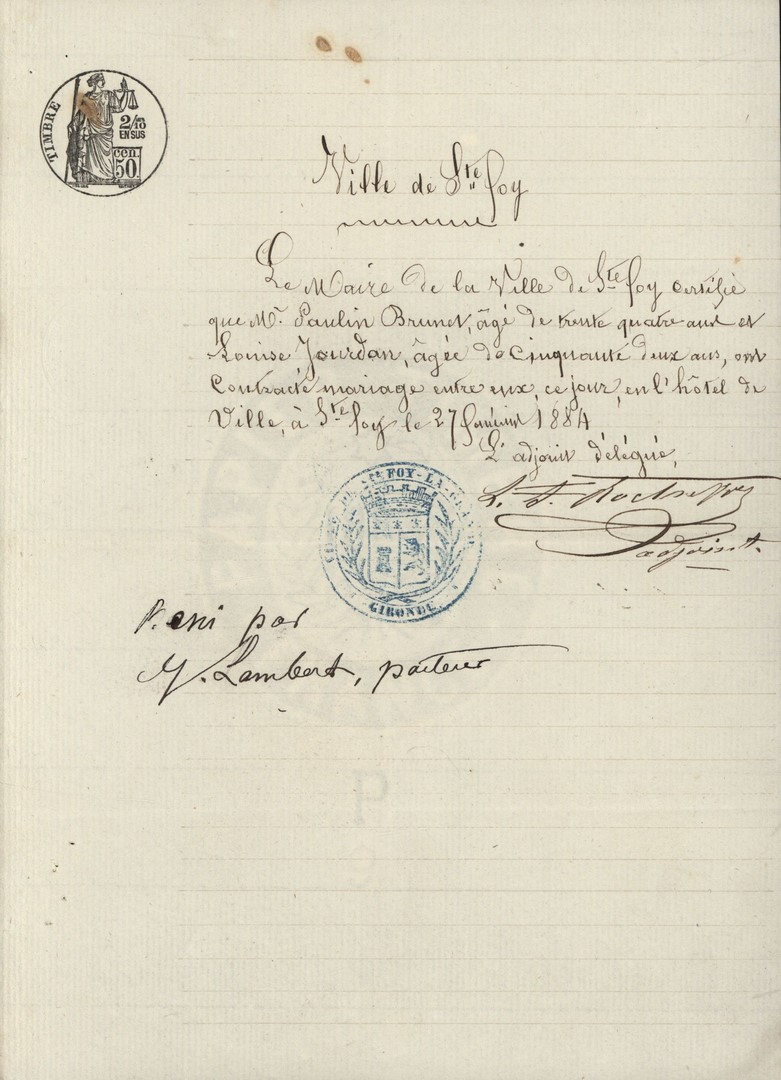 TIMBRE
2/10
EN SUS
cen.
50
Ville de Ste foy
Le Maire de la Ville de Ste foy certifie
que Mr. Paulin Brunet, âgé de trente quatre ans et
Louise Jourdan, âgée de Cinquante deux ans, ont
Contracté mariage entre eux, ce jour, en l'hôtel de
Ville, à Ste foy le 27 1884
L'adjoint délégué,
adjoint.
FOY-LA-GRANDE
GIRONDE
par
Lambert, pasteur